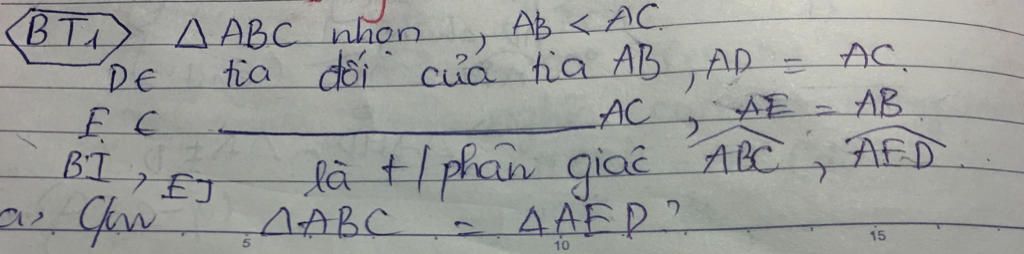 BT1 Δ ABC nhọn, AB < AC.
D ∈ tia đối của tia AB, AD = AC.
E ∈ ________ AC, AE = AB
BI, EJ là t/phân giác ABC, AED.
a, C/m ΔABC = ΔAED?
5 10 15